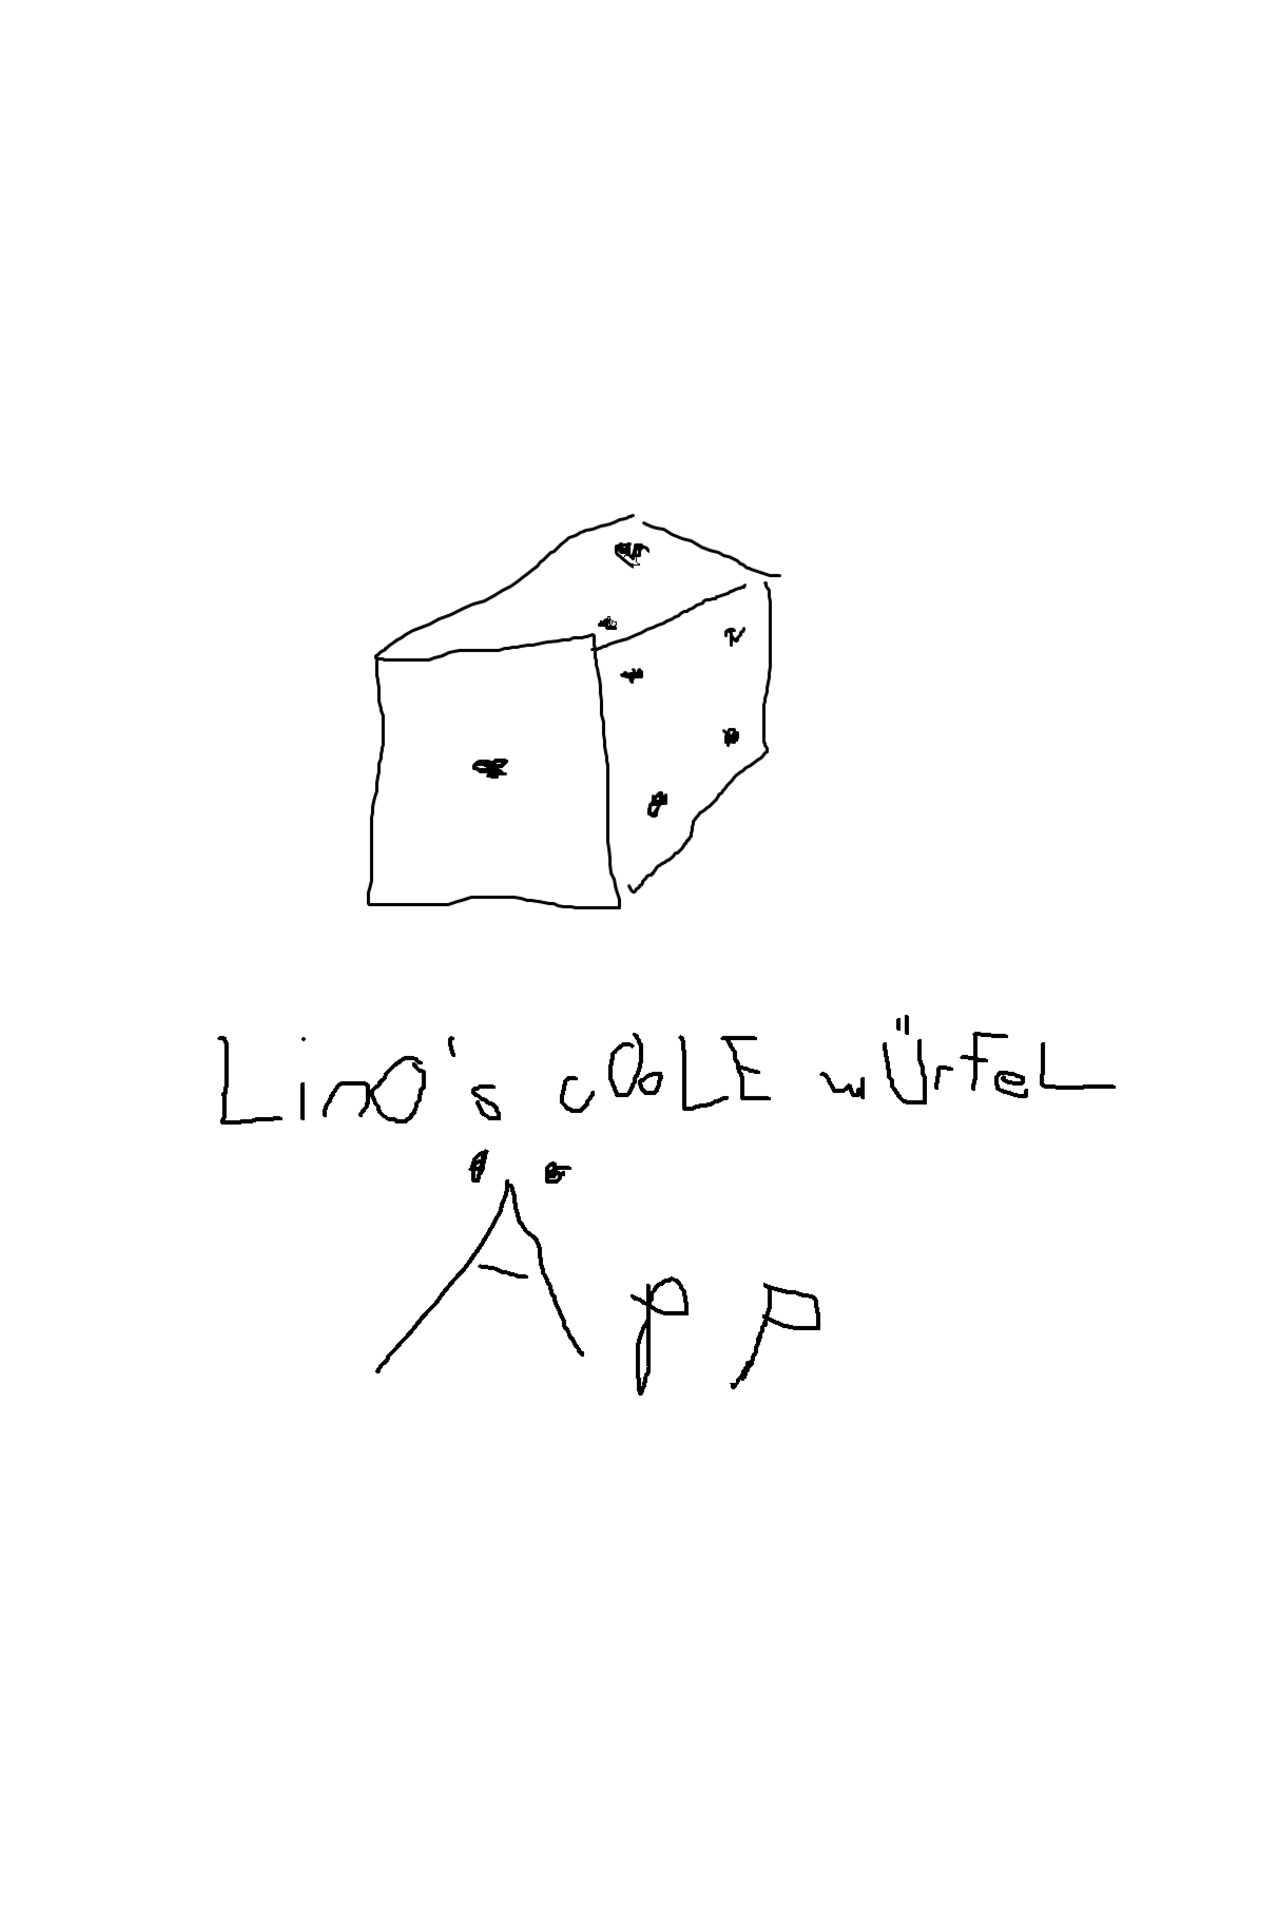 LinO's cOoLE wÜrFeL
Äpp